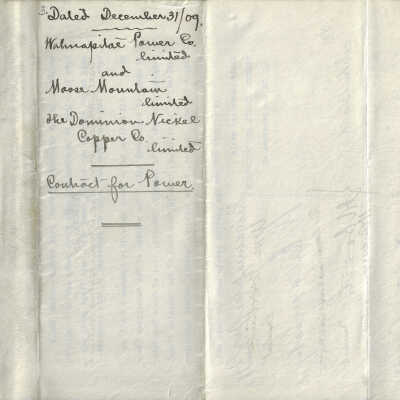 Dated December 31/09.
Wahnapitae Power Co.
limited
and
Moose Mountain
limited
the Dominion Nickel
Copper Co.
limited
Contract for Power